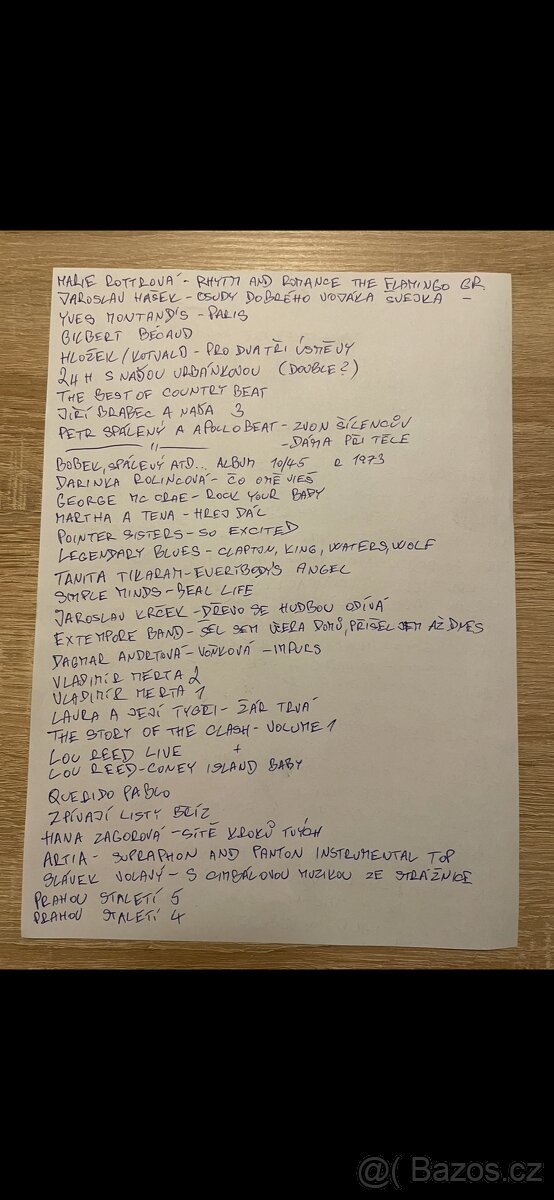 MARIE ROTTROVÁ - RHYTM AND ROMANCE THE FLAMINGO GR.
JAROSLAV HAŠEK - OSUDY DOBRÉHO VOJÁKA ŠVEJKA -
YVES MONTAND'S - PARIS
GILBERT BÉCAUD
HLOŽEK/KOTVALD - PRO DVA TŘI ÚSMĚVY
24 H S NAĎOU URBÁNKOVOU (DOUBLE?)
THE BEST OF COUNTRY BEAT
JIŘÍ BRABEC A NAĎA 3
PETR SPÁLENÝ A APOLLOBEAT - ZVON ŠÍLENCŮV
" - DÁMA PŘI TĚLE
BOBEK, SPÁLENÝ ATD... ALBUM 10/45 R 1973
DARINKA ROLINCOVÁ - ČO O MĚ VIEŠ
GEORGE MC CRAE - ROCK YOUR BABY
MARTHA A TENA - HREJ DÁL
POINTER SISTERS - SO EXCITED
LEGENDARY BLUES - CLAPTON, KING, WATERS, WOLF
TANITA TIKARAM - EVERIBODY'S ANGEL
SIMPLE MINDS - REAL LIFE
JAROSLAV KRČEK - DŘEVO SE HUDBOU ODÍVÁ
EXTEMPORE BAND - ŠEL SEM VČERA DOMŮ, PŘIŠEL JEM AŽ DNES
DAGMAR ANDRTOVÁ - VOŇKOVÁ - IMPURS
VLADIMÍR MERTA 2
VLADIMÍR MERTA 1
LAURA A JEJÍ TYGŘI - ŽÁR TRVÁ
THE STORY OF THE CLASH - VOLUME 1
LOU REED LIVE +
LOU REED - CONEY ISLAND BABY
QUERIDO PABLO
ZPÍVAJÍ LISTY BŘÍZ
HANA ZAGOROVÁ - SÍTĚ KROKŮ TVÝCH
ARTIA - SUPRAPHON AND PANTON INSTRUMENTAL TOP
SLÁVEK VOLAVÝ - S CIMBÁLOVOU MUZIKOU ZE STRÁŽNICE
PRAHOU STALETÍ 5
PRAHOU STALETÍ 4
@( Bazos.cz